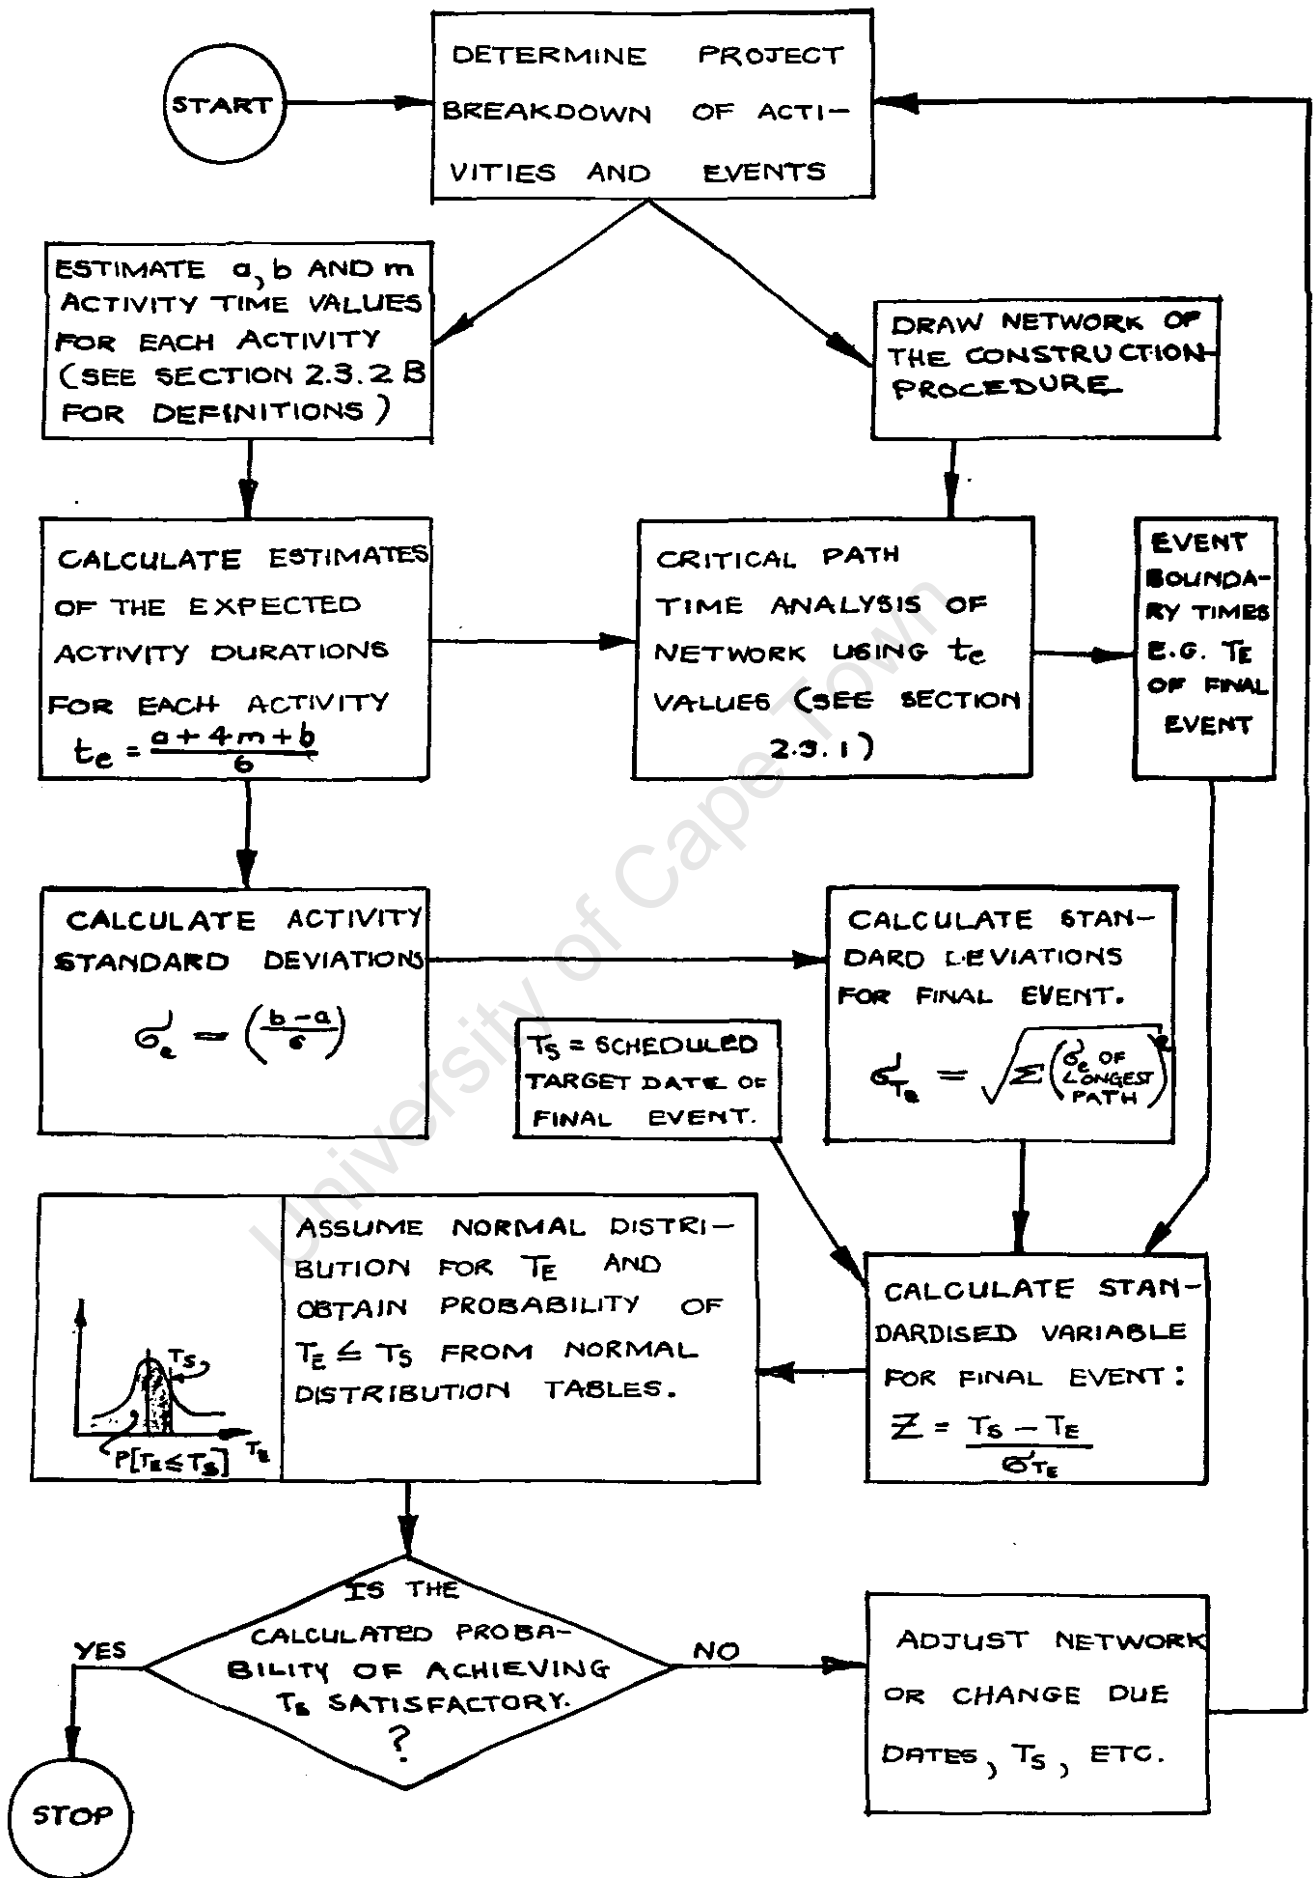 START
DETERMINE PROJECT
BREAKDOWN OF ACTI-
VITIES AND EVENTS
ESTIMATE a, b AND m
ACTIVITY TIME VALUES
FOR EACH ACTIVITY
(SEE SECTION 2.3.2 B
FOR DEFINITIONS)
DRAW NETWORK OF
THE CONSTRUCTION-
PROCEDURE.
CALCULATE ESTIMATES
OF THE EXPECTED
ACTIVITY DURATIONS
FOR EACH ACTIVITY
te = (a + 4m + b)/6
CRITICAL PATH
TIME ANALYSIS OF
NETWORK USING te
VALUES (SEE SECTION
2.3.1)
EVENT
BOUNDA-
RY TIMES
E.G. TE
OF FINAL
EVENT
CALCULATE ACTIVITY
STANDARD DEVIATIONS
σe = ((b - a)/6)
CALCULATE STAN-
DARD DEVIATIONS
FOR FINAL EVENT.
σTe = √Σ(σe OF LONGEST PATH)²
TS = SCHEDULED
TARGET DATE OF
FINAL EVENT.
CALCULATE STAN-
DARDISED VARIABLE
FOR FINAL EVENT:
Z = (TS - TE)/σTE
ASSUME NORMAL DISTRI-
BUTION FOR TE AND
OBTAIN PROBABILITY OF
TE ≤ TS FROM NORMAL
DISTRIBUTION TABLES.
TS
TE
P[TE ≤ TS]
IS THE
CALCULATED PROBA-
BILITY OF ACHIEVING
TS SATISFACTORY.
?
YES
NO
STOP
ADJUST NETWORK
OR CHANGE DUE
DATES, TS, ETC.
University of Cape Town